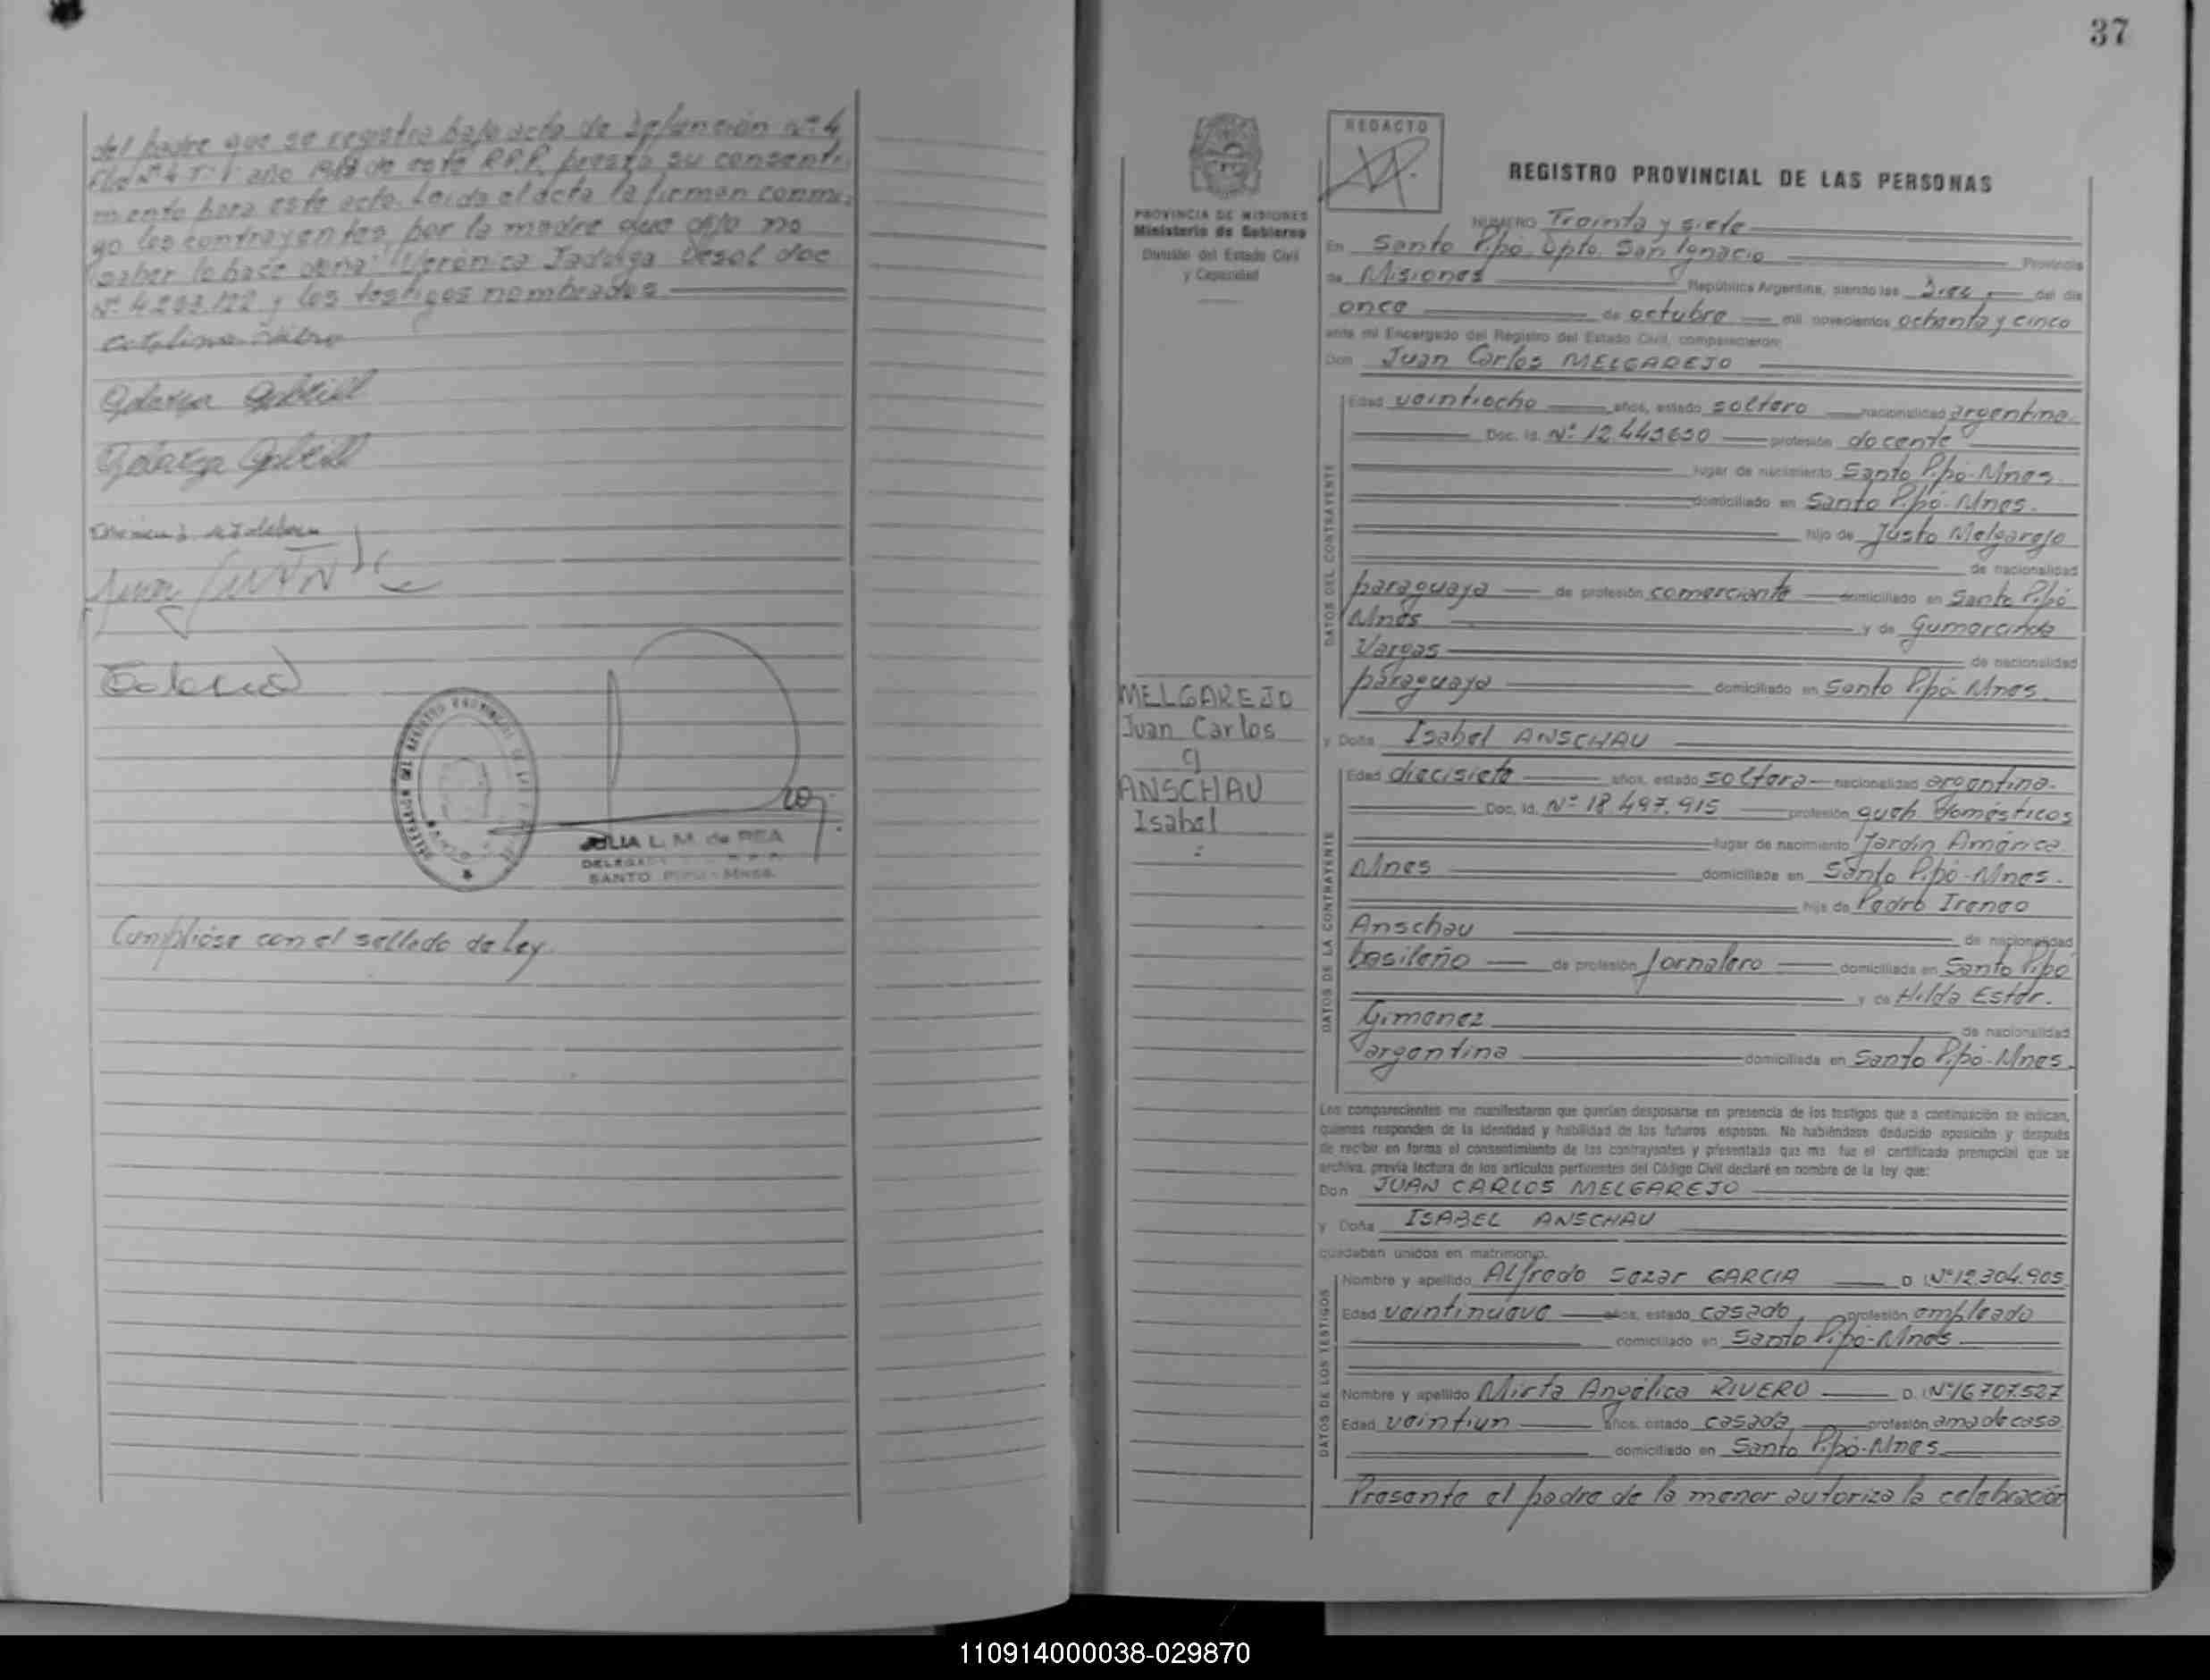 del padre que se registra bajo acta de defunción Nº 4
Flio Nº 4 Tº 1 año de este R.P.P. presta su consenti-
miento para este acto. Leida el acta la firman conmi-
go los contrayentes, por la madre que dijo no
saber lo hace doña: Verónica Jadviga Desol doc
Nº 4.293.122 y los testigos nombrados.
JULIA L. M. de REA
DELEGADA
SANTO PIPO - Mnes.
Cumplióse con el sellado de Ley.
37
PROVINCIA DE MISIONES
Ministerio de Gobierno
División del Estado Civil
y Capacidad
MELGAREJO
Juan Carlos
y
ANSCHAU
Isabel
:
REDACTO
REGISTRO PROVINCIAL DE LAS PERSONAS
NUMERO Treinta y siete
En Santo Pipó. Dpto. San Ignacio Provincia
de Misiones República Argentina, siendo las Diez del día
once de octubre mil novecientos ochenta y cinco
ante mí Encargado del Registro del Estado Civil, comparecieron:
Don Juan Carlos MELGAREJO
DATOS DEL CONTRAYENTE
Edad veintiocho años, estado soltero nacionalidad argentina.
Doc. Id. Nº 12.445630 profesión docente
lugar de nacimiento Santo Pipó-Mnes.
domiciliado en Santo Pipó-Mnes.
hijo de Justo Melgarejo
de nacionalidad
paraguaya de profesión comerciante domiciliado en Santo Pipó
Mnes y de Gumercinda
Vargas de nacionalidad
paraguaya domiciliado en Santo Pipó Mnes.
y Doña Isabel ANSCHAU
DATOS DE LA CONTRAYENTE
Edad diecisiete años, estado soltera nacionalidad argentina.
Doc. Id. Nº 18.497.915 profesión queh. domésticos
lugar de nacimiento Jardín América
Mnes domiciliada en Santo Pipó-Mnes.
hija de Pedro Ireneo
Anschau de nacionalidad
basileño de profesión jornalero domiciliado en Santo Pipó
y de Hilda Ester.
Gimenez de nacionalidad
argentina domiciliada en Santo Pipó-Mnes.
Los comparecientes me manifestaron que querían desposarse en presencia de los testigos que a continuación se indican,
quienes responden de la identidad y habilidad de los futuros esposos. No habiéndose deducido oposición y después
de recibir en forma el consentimiento de los contrayentes y presentado que me fue el certificado prenupcial que se
archiva, previa lectura de los artículos pertinentes del Código Civil declaré en nombre de la ley que:
Don JUAN CARLOS MELGAREJO
y Doña ISABEL ANSCHAU
quedaban unidos en matrimonio.
DATOS DE LOS TESTIGOS
Nombre y apellido Alfredo Sezar GARCIA D. I. Nº 12.304.905
Edad veintinueve años, estado casado, profesión empleado
domiciliado en Santo Pipó-Mnes.
Nombre y apellido Mirta Angélica RIVERO D. I. Nº 16.707.527
Edad veintiun años, estado casada profesión ama de casa
domiciliado en Santo Pipó-Mnes.
Presente el padre de la menor autoriza la celebración
110914000038-029870